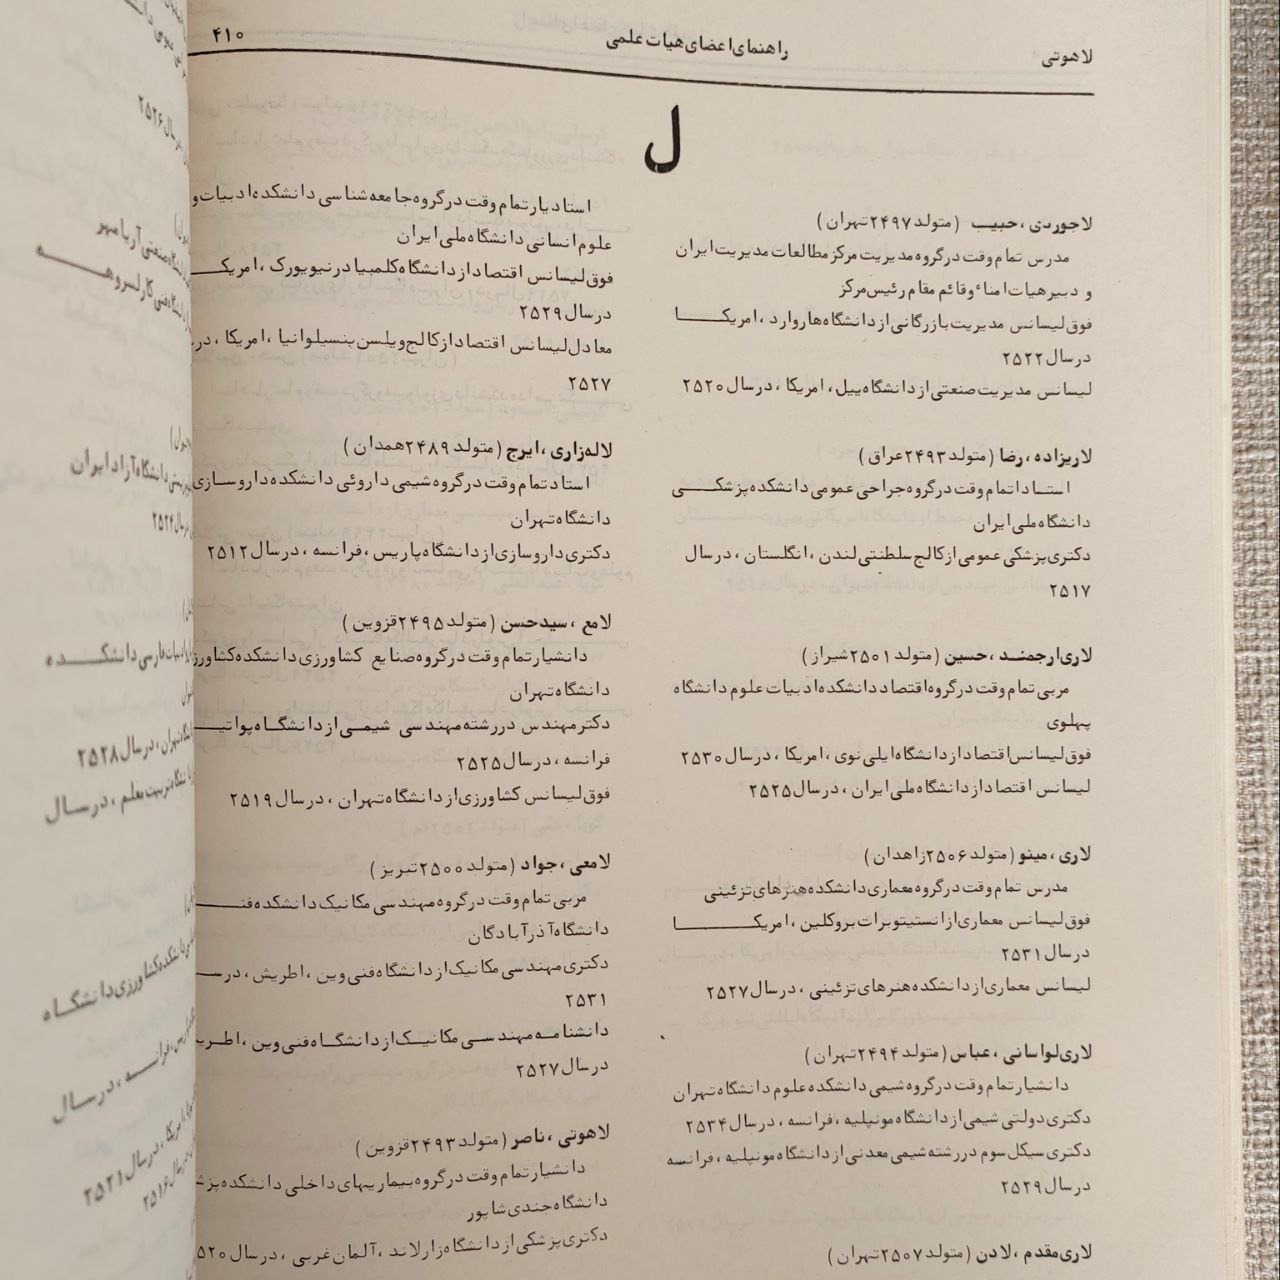 لاهوتی
راهنمای اعضای هیات علمی
۴۱۰
ل
لاجوردی ، حبیب (متولد ۲۴۹۷ تهران)
مدرس تمام وقت در گروه مدیریت مرکز مطالعات مدیریت ایران
و دبیر هیات امناء و قائم مقام رئیس مرکز
فوق لیسانس مدیریت بازرگانی از دانشگاه هاروارد ، امریکا
در سال ۲۵۲۲
لیسانس مدیریت صنعتی از دانشگاه ییل ، امریکا ، در سال ۲۵۲۰
لاریزاده ، رضا (متولد ۲۴۹۳ عراق)
استاد تمام وقت در گروه جراحی عمومی دانشکده پزشکی
دانشگاه ملی ایران
دکتری پزشکی عمومی از کالج سلطنتی لندن ، انگلستان ، در سال
۲۵۱۷
لاری ارجمند ، حسین (متولد ۲۵۰۱ شیراز)
مربی تمام وقت در گروه اقتصاد دانشکده ادبیات علوم دانشگاه
پهلوی
فوق لیسانس اقتصاد از دانشگاه ایلی نوی ، امریکا ، در سال ۲۵۳۰
لیسانس اقتصاد از دانشگاه ملی ایران ، در سال ۲۵۲۵
لاری ، مینو (متولد ۲۵۰۶ زاهدان)
مدرس تمام وقت در گروه معماری دانشکده هنرهای تزئینی
فوق لیسانس معماری از انستیتو برات بروکلین ، امریکا
در سال ۲۵۳۱
لیسانس معماری از دانشکده هنرهای تزئینی ، در سال ۲۵۲۷
لاری لواسانی ، عباس (متولد ۲۴۹۴ تهران)
دانشیار تمام وقت در گروه شیمی دانشکده علوم دانشگاه تهران
دکتری دولتی شیمی از دانشگاه مونپلیه ، فرانسه ، در سال ۲۵۳۴
دکتری سیکل سوم در رشته شیمی معدنی از دانشگاه مونپلیه ، فرانسه
در سال ۲۵۲۹
لاری مقدم ، لادن (متولد ۲۵۰۷ تهران)
استادیار تمام وقت در گروه جامعه شناسی دانشکده ادبیات و
علوم انسانی دانشگاه ملی ایران
فوق لیسانس اقتصاد از دانشگاه کلمبیا در نیویورک ، امریک
در سال ۲۵۲۹
معادل لیسانس اقتصاد از کالج ویلسن پنسیلوانیا ، امریکا ، در
۲۵۲۷
لاله زاری ، ایرج (متولد ۲۴۸۹ همدان)
استاد تمام وقت در گروه شیمی داروئی دانشکده داروسازی
دانشگاه تهران
دکتری داروسازی از دانشگاه پاریس ، فرانسه ، در سال ۲۵۱۲
لامع ، سید حسن (متولد ۲۴۹۵ قزوین)
دانشیار تمام وقت در گروه صنایع کشاورزی دانشکده کشاورز
دانشگاه تهران
دکتر مهندس در رشته مهندسی شیمی از دانشگاه پواتیـ
فرانسه ، در سال ۲۵۲۵
فوق لیسانس کشاورزی از دانشگاه تهران ، در سال ۲۵۱۹
لامعی ، جواد (متولد ۲۵۰۰ تبریز)
مربی تمام وقت در گروه مهندسی مکانیک دانشکده فنـ
دانشگاه آذرآبادگان
دکتری مهندسی مکانیک از دانشگاه فنی وین ، اطریش ، در سـ
۲۵۳۱
دانشنامه مهندسی مکانیک از دانشگاه فنی وین ، اطریـ
در سال ۲۵۲۷
لاهوتی ، ناصر (متولد ۲۴۹۳ قزوین)
دانشیار تمام وقت در گروه بیماریهای داخلی دانشکده پزش
دانشگاه جندی شاپور
دکتری پزشکی از دانشگاه زارلاند ، آلمان غربی ، در سال ۲۵۲۰
در سال ۲۵۲۶
صنعتی آریامهر
فنی کارلسروهه
دانشگاه آزاد ایران
در سال ۲۵۲۴
ادبیات فارسی دانشکده
تهران ، در سال ۲۵۲۸
تربیت معلم ، در سال
دانشکده کشاورزی دانشگاه
فرانسه ، در سال
امریکا ، در سال ۲۵۲۱
در سال ۲۵۱۶